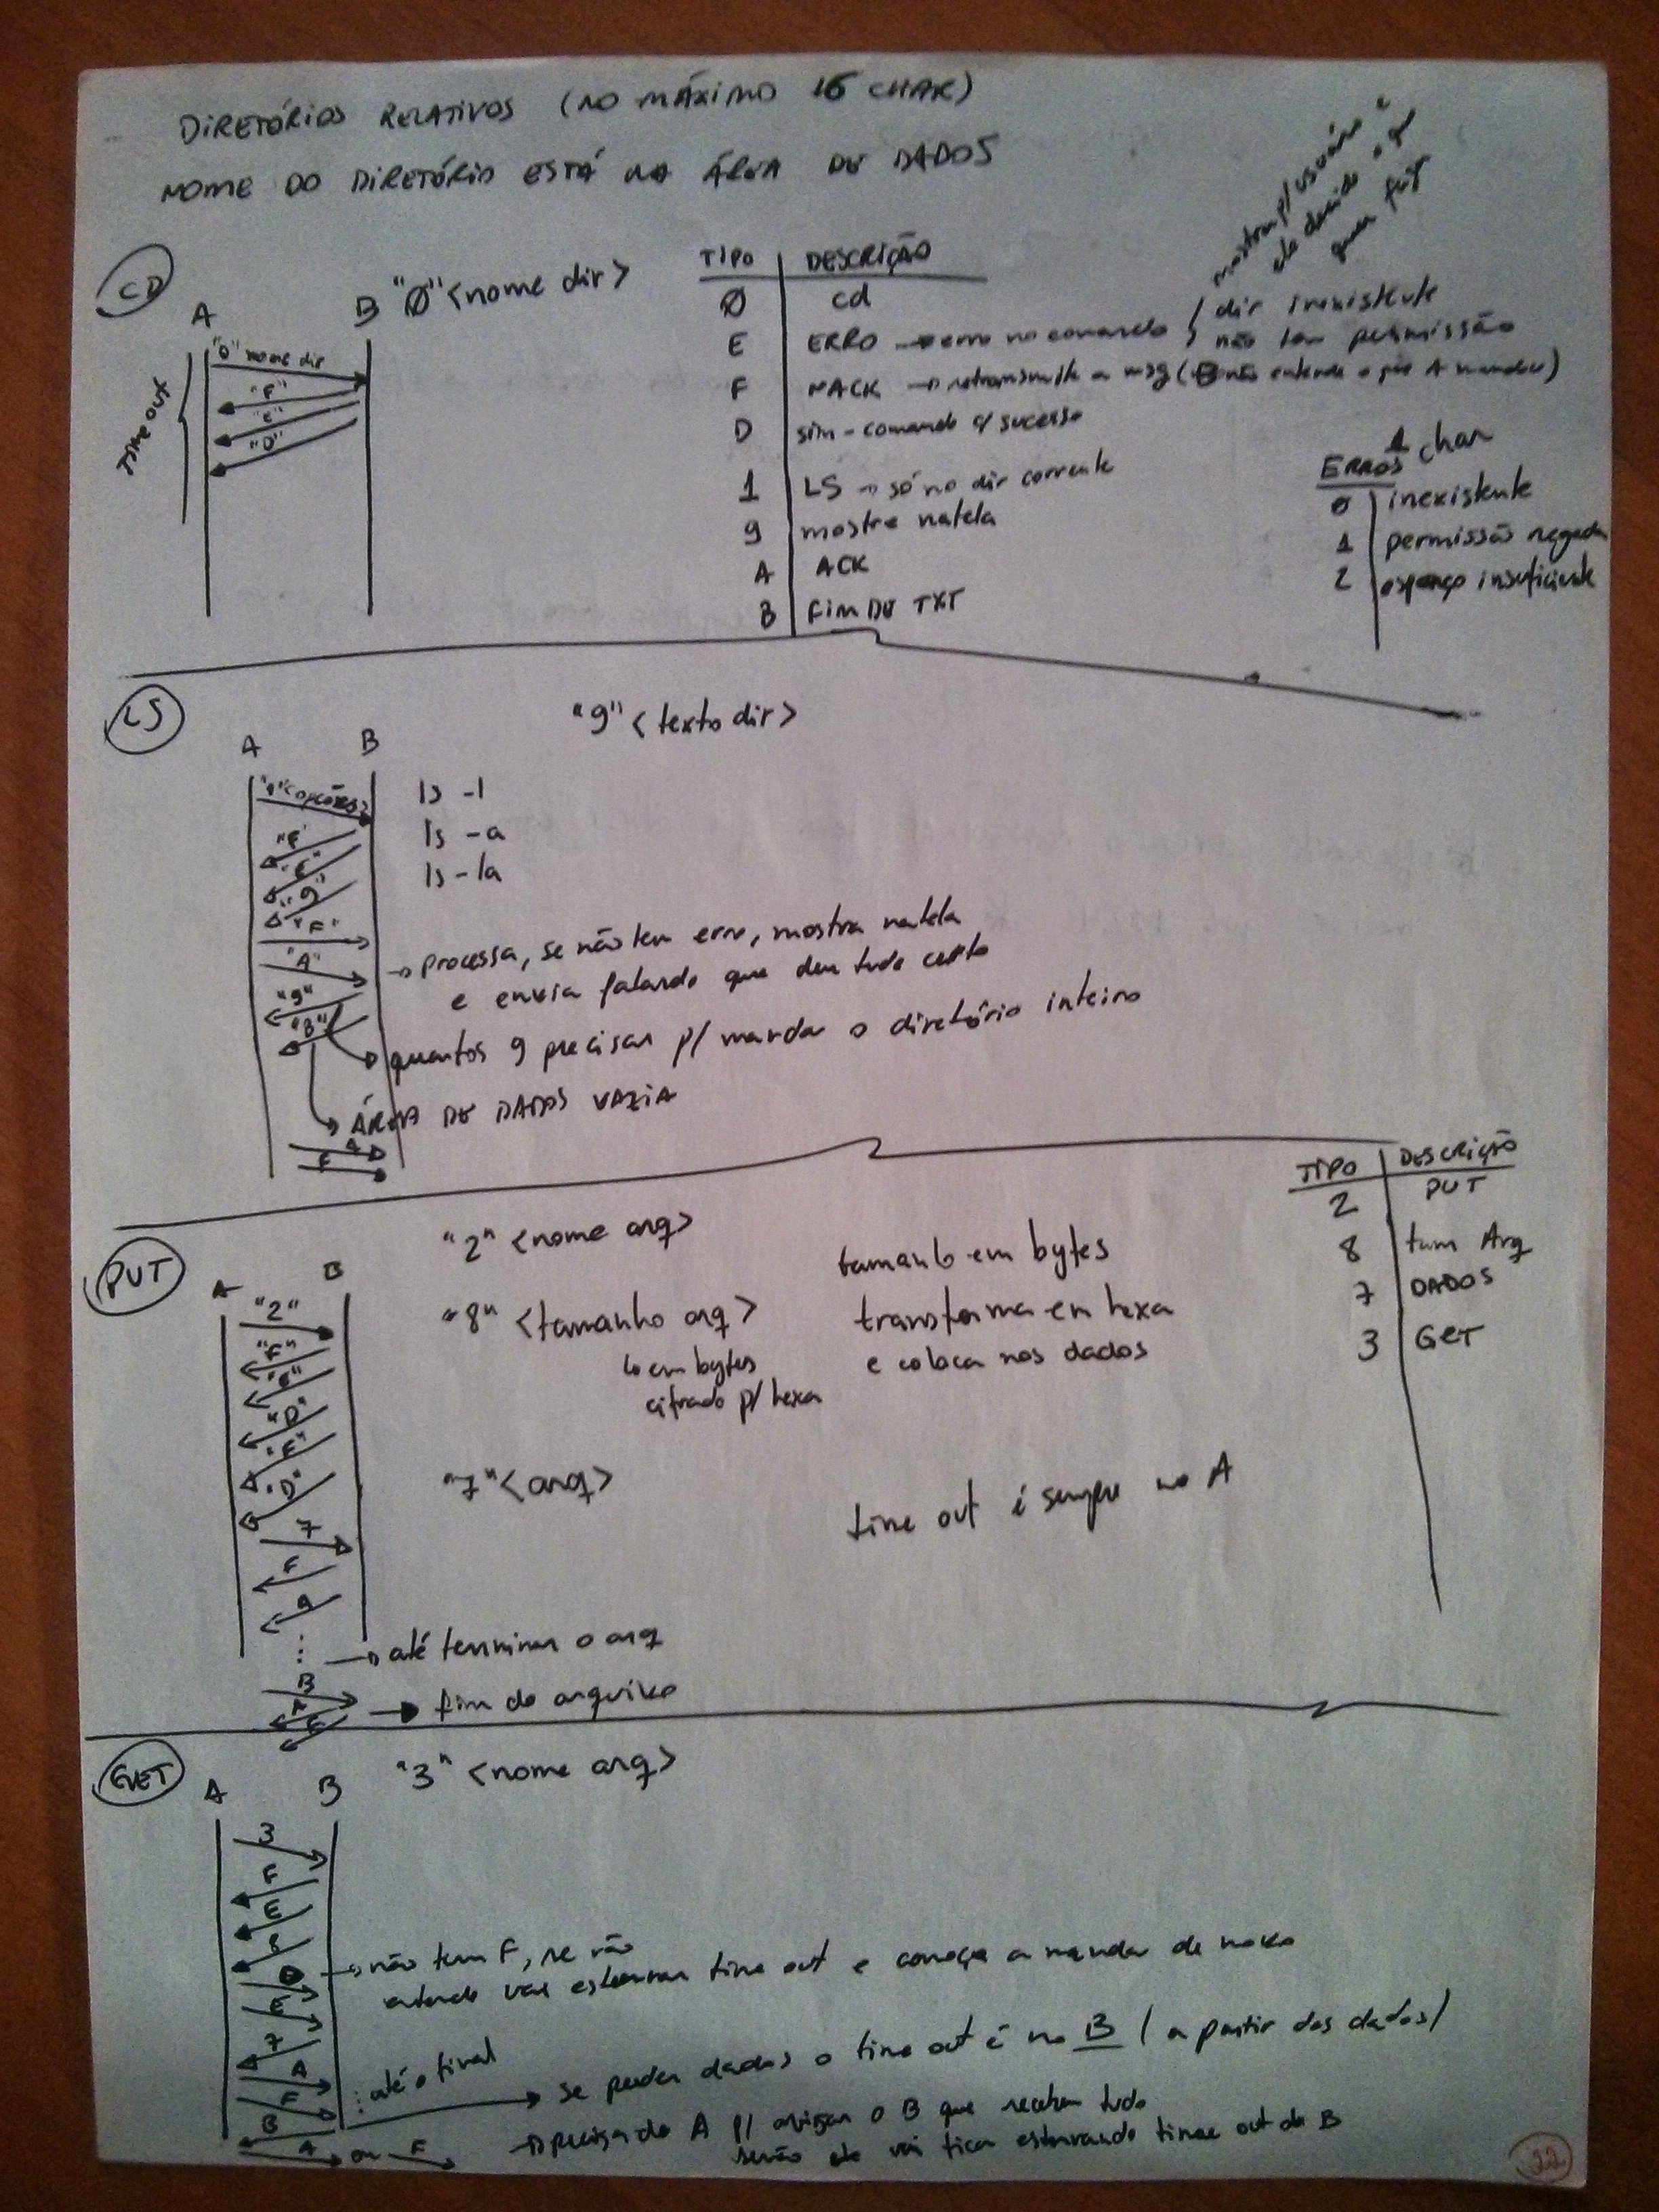 DIRETÓRIOS RELATIVOS (NO MÁXIMO 16 CHAR)
NOME DO DIRETÓRIO ESTÁ NA ÁREA DE DADOS
mostra p/ usuário e
ele decide o que
quer
CD
A B "0" <nome dir>
"0" nome dir
"F"
"E"
"D"
TIME OUT
TIPO DESCRIÇÃO
0 cd
E ERRO → erro no comando
dir inexistente
não tem permissão
F NACK → retransmite a msg (B não entende o que A mandou)
D sim - comando c/ sucesso
1 LS → só no dir corrente
9 mostre na tela
A ACK
B FIM DE TXT
1 char
ERROS
0 inexistente
1 permissão negada
2 espaço insuficiente
LS
"9" <texto dir>
A B
"1" <opções>
"F"
"E"
"9"
"F"
"A"
"9"
"B"
ls -l
ls -a
ls -la
→ processa, se não tem erro, mostra na tela
e envia falando que deu tudo certo
quantos 9 precisar p/ mandar o diretório inteiro
ÁREA DE DADOS VAZIA
A
F
TIPO DESCRIÇÃO
2 PUT
8 tam Arq
7 DADOS
3 GET
PUT
A B
"2" <nome arq>
"8" <tamanho arq>
em bytes
cifrado p/ hexa
tamanho em bytes
transforma em hexa
e coloca nos dados
"7" <arq>
time out é sempre no A
"2"
"F"
"E"
"D"
"E"
"D"
7
F
A
⋮ → até terminar o arq
B
A
F
→ fim do arquivo
GET
A B "3" <nome arq>
3
F
E
8
D
E
→ não tem F, se não
entende vai estourar time out e começa a mandar de novo
7
A
F
⋮ até o final
B
A ou F
→ se perder dados o time out é no B (a partir dos dados)
→ precisa do A p/ avisar o B que recebeu tudo
senão ele vai ficar estourando time out do B
22